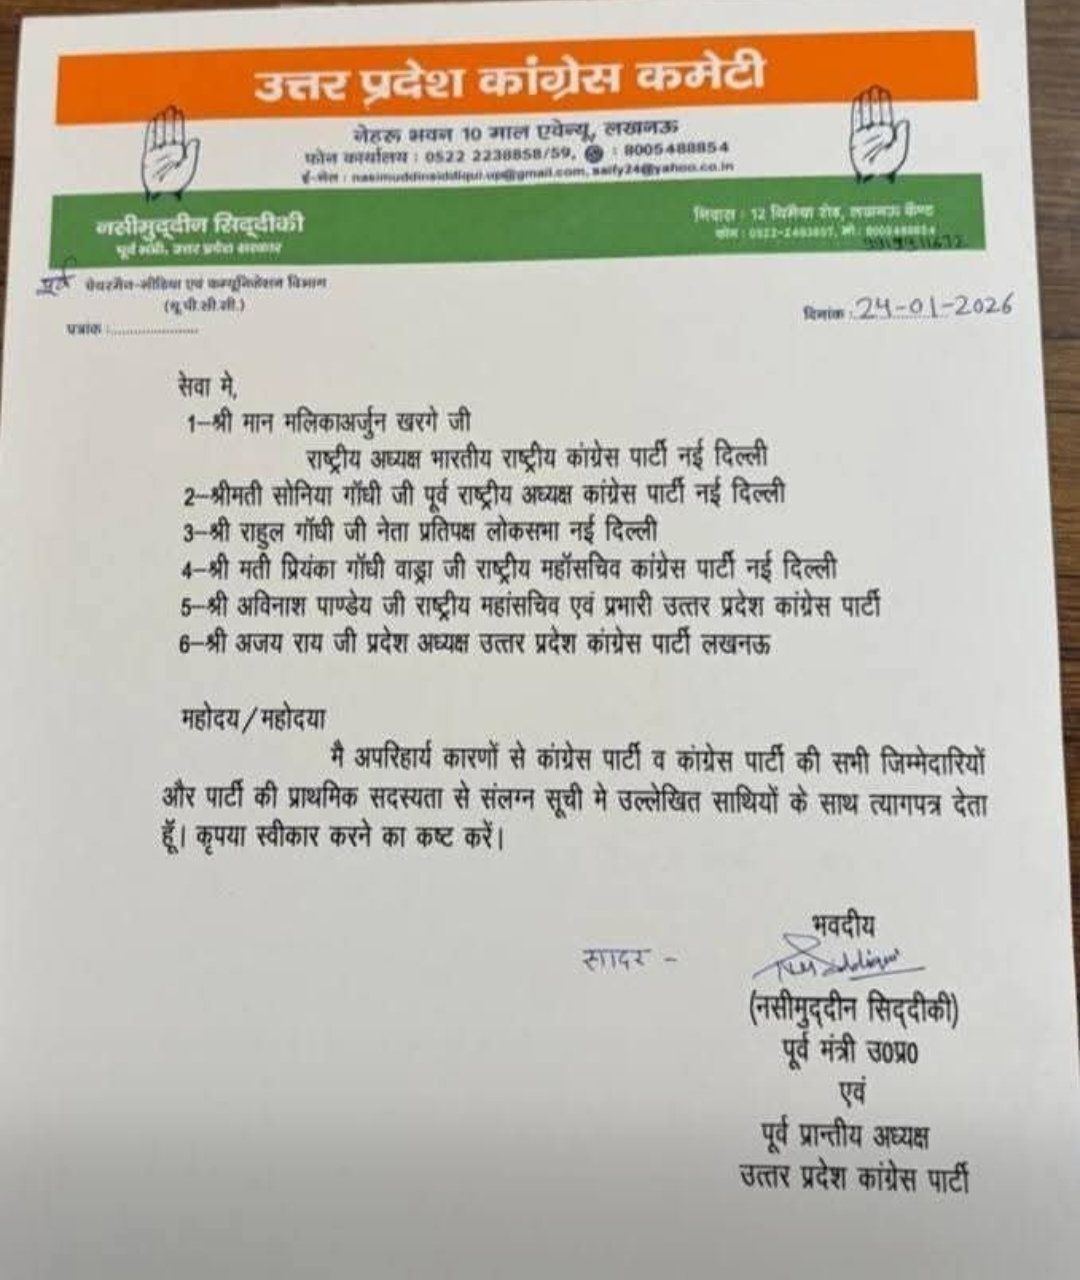 उत्तर प्रदेश कांग्रेस कमेटी
नेहरू भवन 10 माल एवेन्यू, लखनऊ
फोन कार्यालय : 0522 2238858/59, : 8005488854
ई-मेल : nasimuddinsiddiqui.up@gmail.com, saify24@yahoo.co.in
नसीमुद्दीन सिद्दीकी
पूर्व मंत्री, उत्तर प्रदेश सरकार
निवास : 12 रोड, लखनऊ कैण्ट
फोन : मो : 8005488854
पूर्व चेयरमैन-मीडिया एवं कम्यूनिकेशन विभाग
(यू.पी.सी.सी.)
पत्रांक :......................
दिनांक : 24-01-2026
सेवा मे,
1–श्री मान मलिकाअर्जुन खरगे जी
राष्ट्रीय अध्यक्ष भारतीय राष्ट्रीय कांग्रेस पार्टी नई दिल्ली
2–श्रीमती सोनिया गॉधी जी पूर्व राष्ट्रीय अध्यक्ष कांग्रेस पार्टी नई दिल्ली
3–श्री राहुल गॉधी जी नेता प्रतिपक्ष लोकसभा नई दिल्ली
4–श्री मती प्रियंका गॉधी वाड्रा जी राष्ट्रीय महॉसचिव कांग्रेस पार्टी नई दिल्ली
5–श्री अविनाश पाण्डेय जी राष्ट्रीय महांसचिव एवं प्रभारी उत्तर प्रदेश कांग्रेस पार्टी
6–श्री अजय राय जी प्रदेश अध्यक्ष उत्तर प्रदेश कांग्रेस पार्टी लखनऊ
महोदय/महोदया
मै अपरिहार्य कारणों से कांग्रेस पार्टी व कांग्रेस पार्टी की सभी जिम्मेदारियों
और पार्टी की प्राथमिक सदस्यता से संलग्न सूची मे उल्लेखित साथियों के साथ त्यागपत्र देता
हूँ। कृपया स्वीकार करने का कष्ट करें।
भवदीय
सादर –
(नसीमुद्दीन सिद्दीकी)
पूर्व मंत्री उ0प्र0
एवं
पूर्व प्रान्तीय अध्यक्ष
उत्तर प्रदेश कांग्रेस पार्टी